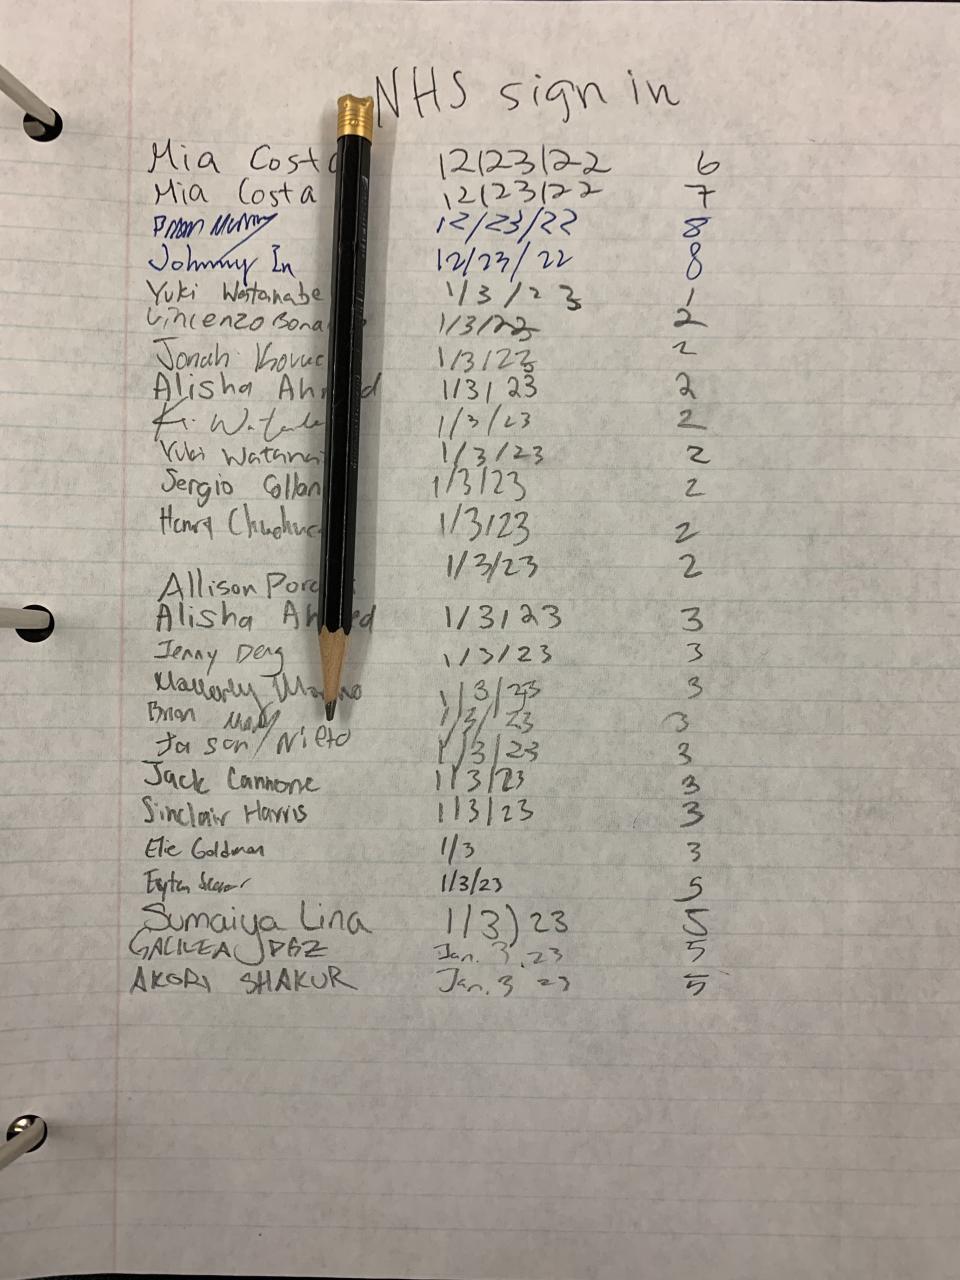 NHS sign in
Mia Costa 12/23/22 6
Mia Costa 12/23/22 7
Brian 12/23/22 8
Johnny In 12/23/22 8
Yuki Watanabe 1/3/23 1
Vincenzo 1/3/23 2
Jonah 1/3/23 2
Alisha 1/3/23 2
1/3/23 2
Yuki 1/3/23 2
Sergio 1/3/23 2
Henry 1/3/23 2
Allison 1/3/23 2
Alisha 1/3/23 3
Jenny Deng 1/3/23 3
1/3/23 3
Brian 1/3/23 3
Jason Nieto 1/3/23 3
Jack Cannone 1/3/23 3
Sinclair Harris 1/3/23 3
Elie Goldman 1/3 3
1/3/23 5
Sumaiya Lina 1/3/23 5
GALILEA Jan. 3, 23 5
SHAKUR Jan. 3 23 5